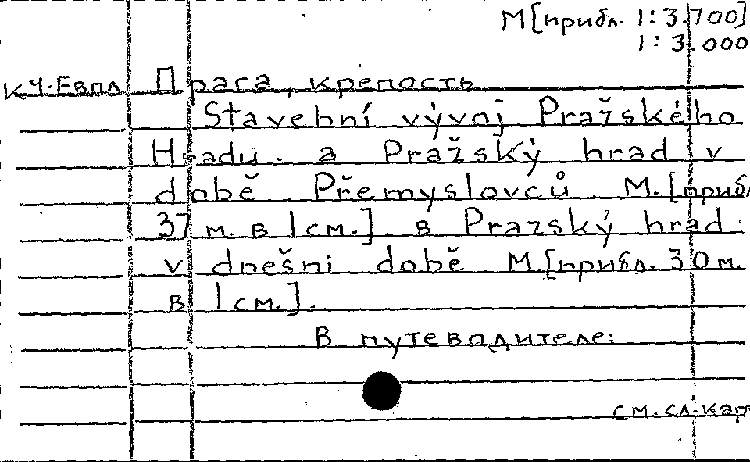 М[прибл. 1:3.700]
1:3.000
КЧ-Евпл Прага, крепость
Stavební vývoj Pražského
Hradu. a Pražský hrad v
době Přemyslovců М.[прибл
37 м. в 1см.] в Pražský hrad.
v dnešni době М.[прибл. 30 м.
в 1см.].
В путеводителе:
см.сл.кар